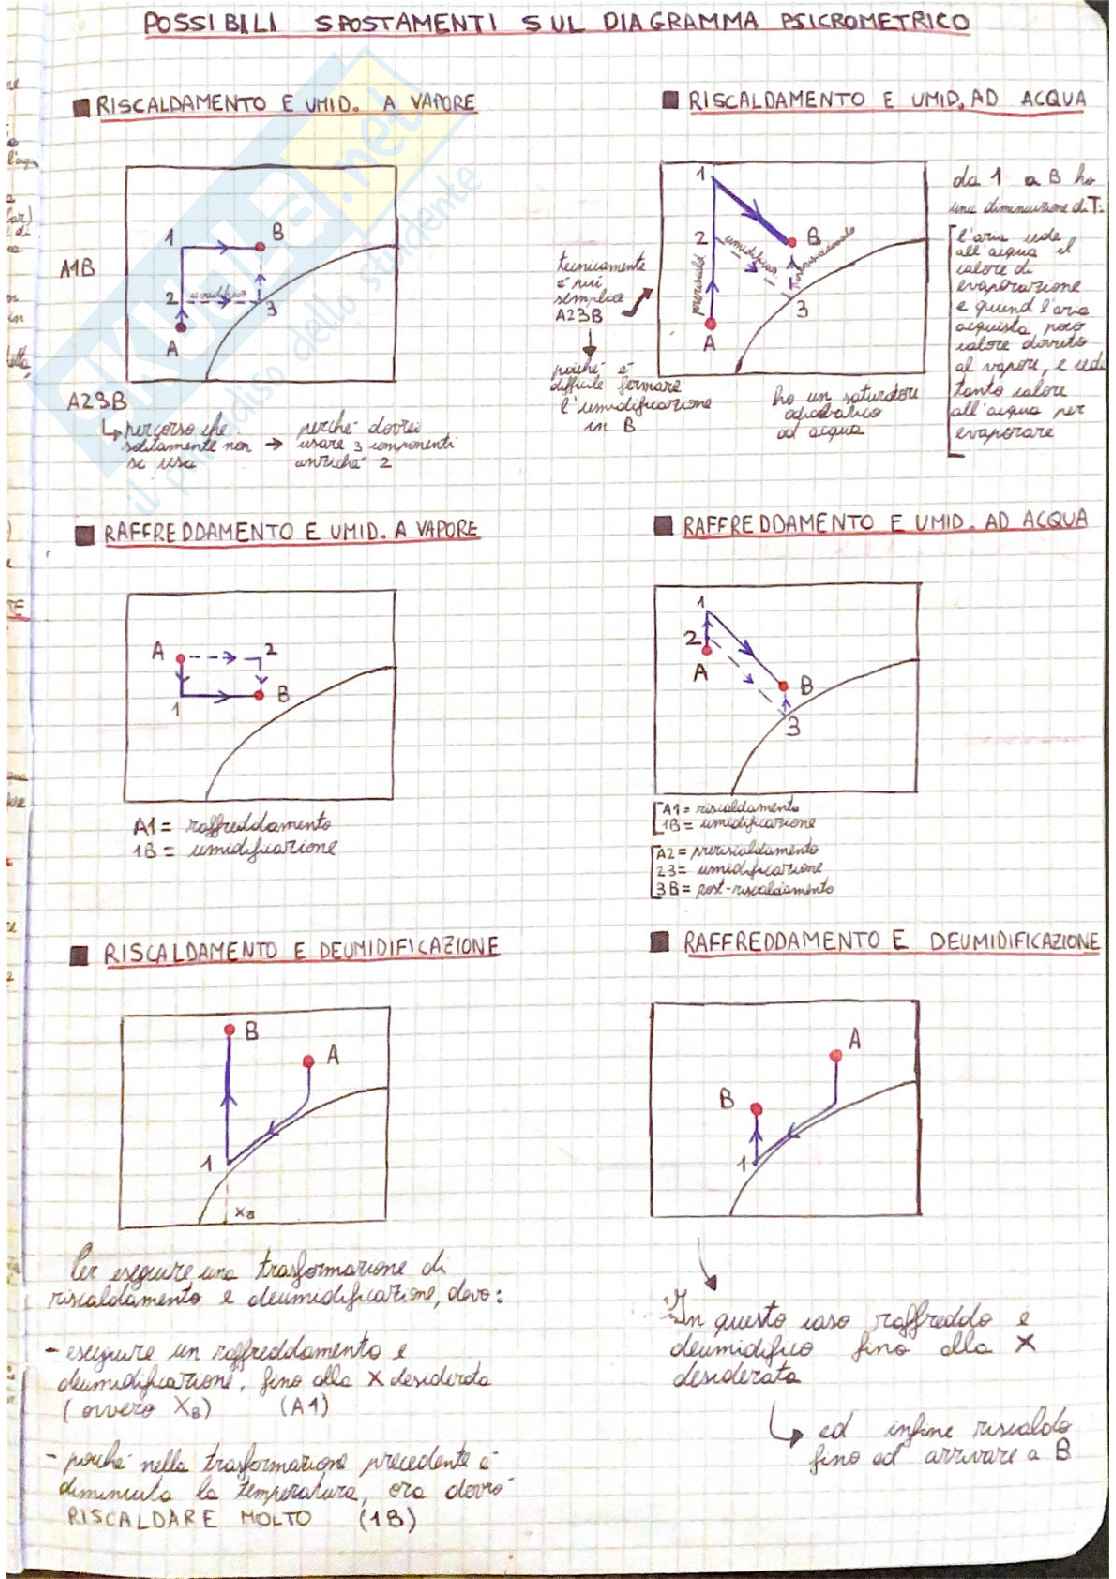 POSSIBILI SPOSTAMENTI SUL DIAGRAMMA PSICROMETRICO
■ RISCALDAMENTO E UMID. A VAPORE
1
B
A1B
2
umidifico
3
A
A23B
↳ percorso che
solitamente non →
si usa
perché dovrei
usare 3 componenti
anziché 2
■ RISCALDAMENTO E UMID. AD ACQUA
1
2
B
umidifico
preriscald
3
A
tecnicamente
è più
semplice
A23B
poiché è
difficile fermare
l'umidificazione
in B
ho un saturatore
adiabatico
ad acqua
da 1 a B ho
una diminuzione di T:
l'aria cede
all'acqua il
calore di
evaporazione
e quindi l'aria
acquista poco
calore dovuto
al vapore, e cede
tanto calore
all'acqua per
evaporare
■ RAFFREDDAMENTO E UMID. A VAPORE
A
2
1
B
A1 = raffreddamento
1B = umidificazione
■ RAFFREDDAMENTO E UMID. AD ACQUA
1
2
A
B
3
A1 = riscaldamento
1B = umidificazione
A2 = preriscaldamento
23 = umidificazione
3B = post-riscaldamento
■ RISCALDAMENTO E DEUMIDIFICAZIONE
B
A
1
XB
Per eseguire una trasformazione di
riscaldamento e deumidificazione, devo:
- eseguire un raffreddamento e
deumidificazione, fino alla X desiderata
(ovvero XB) (A1)
- poiché nella trasformazione precedente è
diminuita la temperatura, ora dovrò
RISCALDARE MOLTO (1B)
■ RAFFREDDAMENTO E DEUMIDIFICAZIONE
A
B
1
In questo caso raffreddo e
deumidifico fino alla X
desiderata
↳ ed infine riscaldo
fino ad arrivare a B
skuola.net
il paradiso dello studente